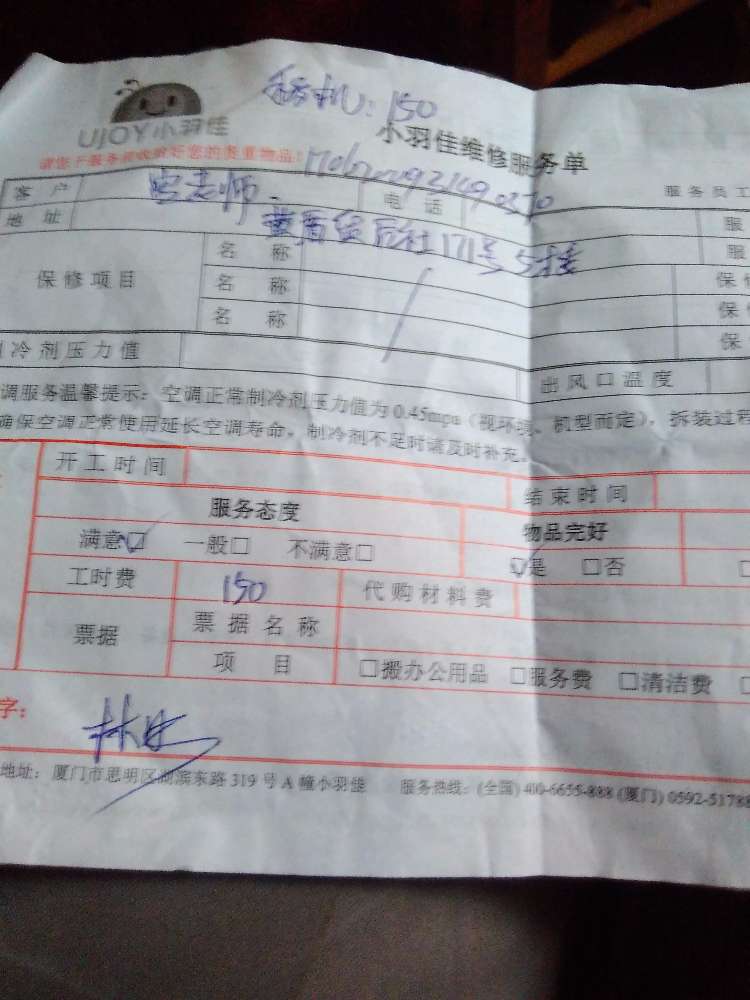 移机：150
UJOY小羽佳
小羽佳维修服务单
请您于服务前收好您的贵重物品！
服务员工
客 户 老师 电 话
地 址 后社171号5楼 服
保修项目 名 称 服
名 称 保修
名 称 保修
保
冷剂压力值 出风口温度
调服务温馨提示：空调正常制冷剂压力值为0.45mpa（视环境、机型而定），拆装过程
确保空调正常使用延长空调寿命，制冷剂不足时请及时补充。
开工时间 结束时间
服务态度 物品完好
满意☑ 一般□ 不满意□ ☑是 □否
工时费 150 代购材料费
票据 票据名称
项 目 □搬办公用品 □服务费 □清洁费
字：
地址：厦门市思明区湖滨东路319号A幢小羽佳 服务热线：(全国) 400-6655-888 (厦门) 0592-51788